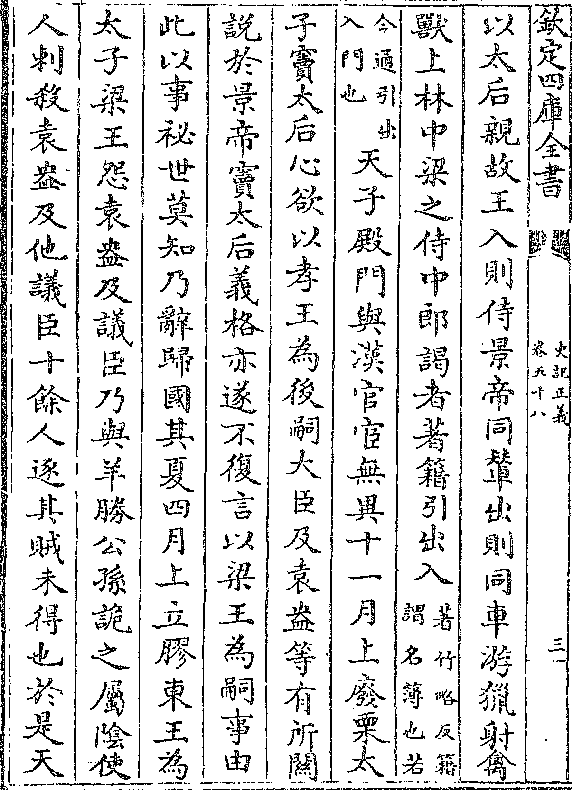 欽定四庫全書
史記正義
卷五十八
三
以太后親故王入則侍景帝同輦出則同車游獵射禽
獸上林中梁之侍中郎謁者著籍引出入
著竹略反籍
謂名簿也若
今通引出
入門也
天子殿門與漢官宦無異十一月上廢栗太
子竇太后心欲以孝王為後嗣大臣及袁盎等有所關
說於景帝竇太后義格亦遂不復言以梁王為嗣事由
此以事祕世莫知乃辭歸國其夏四月上立膠東王為
太子梁王怨袁盎及議臣乃與羊勝公孫詭之屬陰使
人刺殺袁盎及他議臣十餘人逐其賊未得也於是天